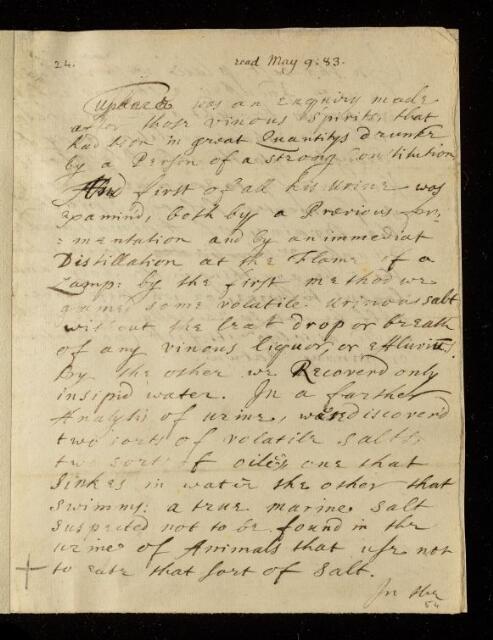 24. read May 9: 83.
was an enquiry made
after those vinous Spirits that
had been in great Quantitys drunke
by a Person of a strong Constitution
And first of all his Urine was
Examind, both by a Previous fer,
=mentation and by an immediat
Distillation at the Flame of a
Lamp: by the first method we
gained some volatile Urinous salt
without the least drop or breath
of any vinous liquor, or effluviū.
By the other we Recoverd only
insipid water. In a farther
Analysis of urine, discoverd
two sorts of volatile Salts,
two sorts of one that
Sinkes in water the other that
Swimms: a true marine Salt
Suspected not to be found in the
urine of Animals that use not
to eate that sort of Salt.
In the